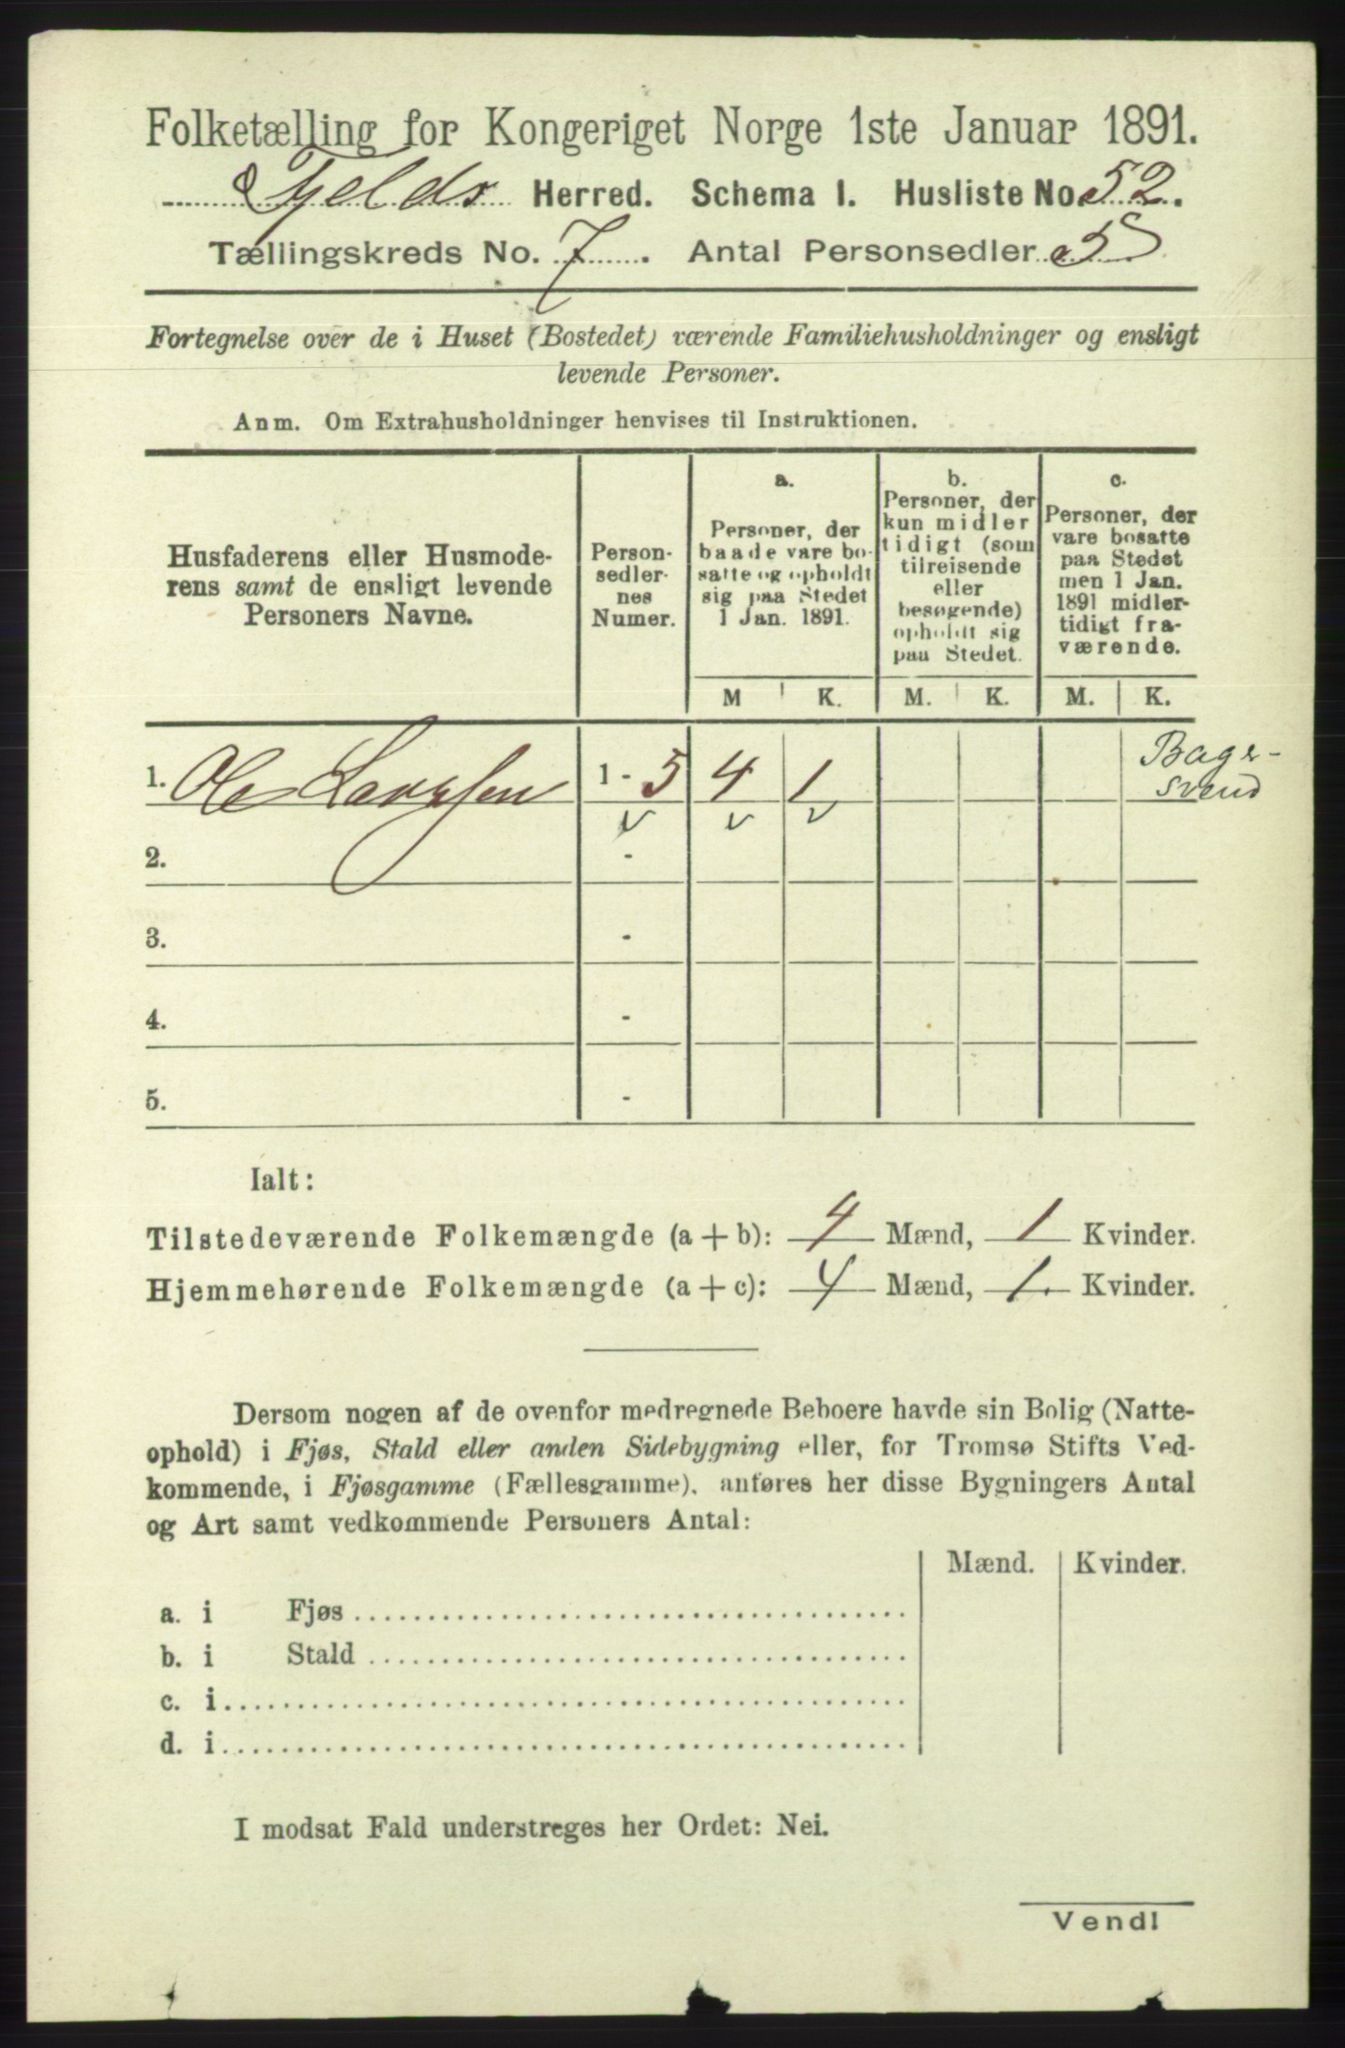 Folketælling for Kongeriget Norge 1ste Januar 1891.
Fjelds Herred. Schema I. Husliste No. 52.
Tællingskreds No. 7. Antal Personsedler 5
Fortegnelse over de i Huset (Bostedet) værende Familiehusholdninger og ensligt
levende Personer.
Anm. Om Extrahusholdninger henvises til Instruktionen.
Husfaderens eller Husmode-
rens samt de ensligt levende
Personers Navne.
Person-
sedler-
nes
Numer.
a.
Personer, der
baade vare bo-
satte og opholdt
sig paa Stedet
1 Jan. 1891.
b.
Personer, der
kun midler
tidigt (som
tilreisende
eller
besøgende)
opholdt sig
paa Stedet.
c.
Personer, der
vare bosatte
paa Stedet
men 1 Jan.
1891 midler-
tidigt fra-
værende.
M K. M. K. M. K.
1. Ole Larssen 1 - 5 4 1 Bager-
svend
2. -
3. -
4. -
5. -
Ialt:
Tilstedeværende Folkemængde (a + b): 4 Mænd, 1 Kvinder.
Hjemmehørende Folkemængde (a + c): 4 Mænd, 1. Kvinder.
Dersom nogen af de ovenfor medregnede Beboere havde sin Bolig (Natte-
ophold) i Fjøs, Stald eller anden Sidebygning eller, for Tromsø Stifts Ved-
kommende, i Fjøsgamme (Fællesgamme), anføres her disse Bygningers Antal
og Art samt vedkommende Personers Antal:
Mænd. Kvinder.
a. i Fjøs
b. i Stald
c. i
d. i
I modsat Fald understreges her Ordet: Nei.
Vend!